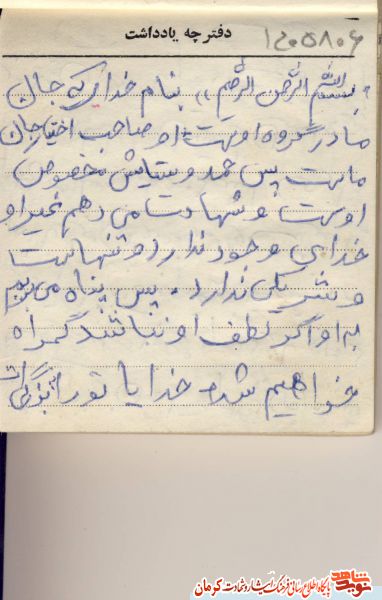 دفترچه یادداشت
«بسم الله الرحمن الرحیم» بنام خدایی که جان
ما در گرو اوست او صاحب اختیار جان
ماست پس حمد و ستایش مخصوص
اوست و شهادت می دهم غیر او
خدایی وجود ندارد و تنهاست
و شریکی ندارد. پس پناه می بریم
به او اگر لطف او نباشد گمراه
خواهیم شد. خدایا تو را بزرگی
نوید شاهد
پایگاه اطلاع رسانی فرهنگ ایثار و شهادت کرمان